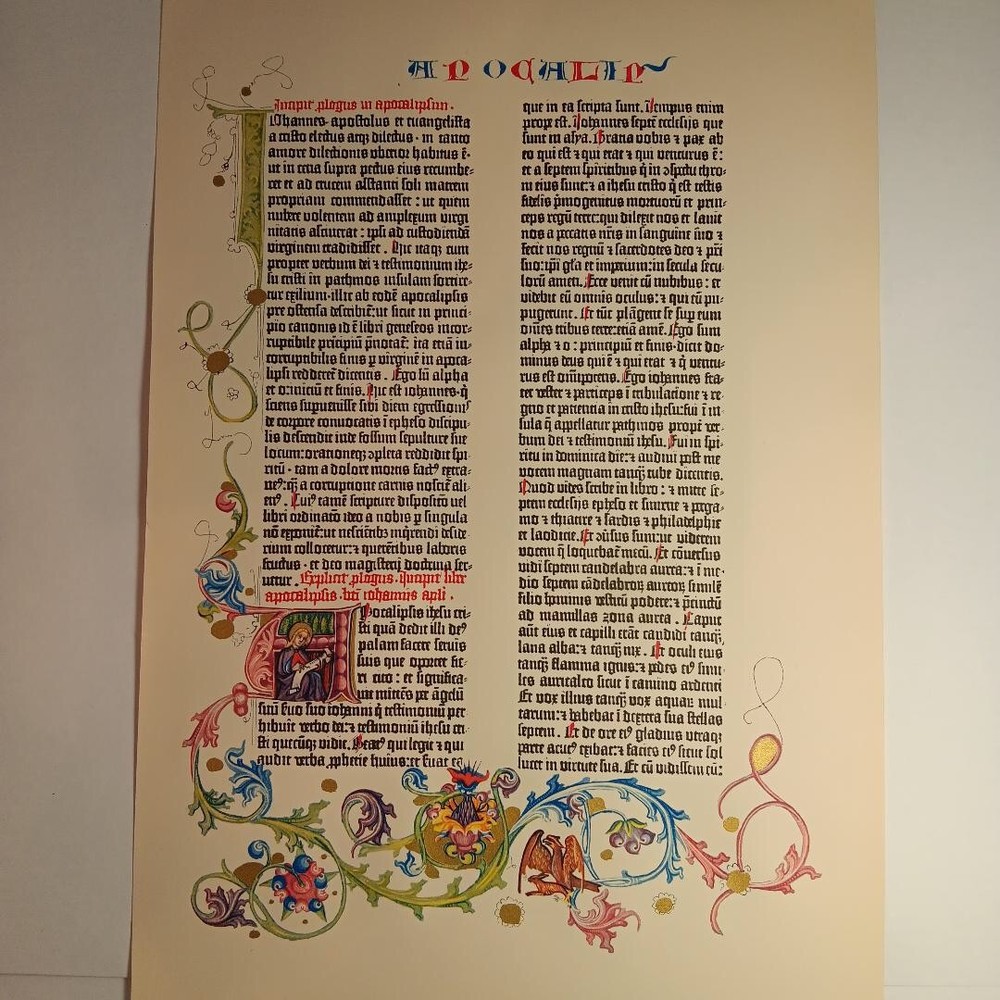 APOCALIP
Incipit plogus in apocalipsim.
Iohannes apostolus et euangelista
a cristo electus atq; dilectus · in tanto
amore dilectionis vberior habitus ē·
ut in cena supra pectus eius recumbe-
ret et ad crucem astanti soli matrem
propriam commendasset : ut quem
nubere volentem ad amplexum virgi
nitatis asciuerat : ipsi ad custodiendū
virginem tradidisset . Hic itaq; cum
propter verbum dei ⁊ testimonium ihe-
su cristi in pathmos insulam sortire-
tur exilium·illic ab eodē apocalipsis
pre ostensa describit̄:ut sicut in princi-
pio canonis id ē libri geneseos incor-
ruptibile pricipiū p̄notat̄: ita etiā in-
corruptibilis finis ꝑ virginē in apoca-
lipsi redderet̄ dicentis . Ego sū alpha
et o:iniciū et finis. Hic est iohannes·q̇
sciens supuenisse sibi diem egressionis
de corpore conuocatis ī epheso discipu-
lis descendit in defossum sepulture sue
locum:orationeq; ɔpleta reddidit spi-
ritū · tam a dolore mortis factꝰ extra-
neꝰ:q̄ a corruptione carnis noscit̄ ali-
enꝰ . Cuiꝰ tamē scripture dispositō uel
libri ordinatō ideo a nobis ꝑ singula
nō exponit̄:ut nesciētibꝫ inq̇rendi deside-
rium collocetur:⁊ querētibus laboris
fructus · et deo magisterij doctrina ser-
uetur . Explicit plogus· Incipit liber
apocalipsis· bti iohannis apli .
Apocalipsis ihesu cri-
sti quā dedit illi deꝰ
palam facere seruis
suis que oportet fie-
ri cito : et significa-
uit mittēs per āgelū
suū seruo suo iohanni q̇ testimoniū per
hibuit verbo dei:⁊ testimoniū ihesu cri-
sti quecūq; vidit. Beatꝰ qui legit ⁊ qui
audit verba prophetie huius:et seruat ea
que in ea scripta sunt. Tempus enim
prope est. Iohannes septē ecclesijs que
sunt in asya. Gratia vobis ⁊ pax ab
eo qui est ⁊ qui erat ⁊ qui venturus ē:
et a septem spiritibus q̇ in ɔspectu thro-
ni eius sunt:⁊ a ihesu cristo q̇ est testis
fidelis p̄mogenitus mortuorū et prin-
ceps regū terre:qui dilexit nos et lauit
nos a peccatis nr̄is in sanguine suo ⁊
fecit nos regnū ⁊ sacerdotes deo ⁊ pr̄i
suo:ip̄i gl̄a et imperium:in secula secu-
lorū amen. Ecce venit cū nubibus : et
videbit eū omnis oculus:⁊ qui eū pu-
pugerunt . Et tūc plāgent se sup eum
om̄es tribus terre:etiā amē. Ego sum
alpha ⁊ o : principiū et finis·dicit do-
minus deus qui ē ⁊ qui erat ⁊ q̇ ventu-
rus est om̄ipotens. Ego iohannes fra-
ter vester ⁊ particeps ī tribulatione ⁊ re-
gno et patientia in cristo ihesu:fui ī in-
sula q̄ appellatur pathmos propt̄ ver-
bum dei ⁊ testimoniū ihesu. Fui in spi-
ritu in dominica die:⁊ audiui post me
vocem magnam tanq̄ tube dicentis.
Quod vides scribe in libro : ⁊ mitte se-
ptem ecclesijs epheso et smirne ⁊ perga-
mo ⁊ thiatire ⁊ sardis ⁊ philadelphie
et laodicie. Et ɔuersus sum:ut viderem
vocem q̄ loquebat̄ mecū. Et cōuersus
vidi septem candelabra aurea: ⁊ ī me-
dio septem cādelabrorū aureorū similē
filio hominis vestitū podere:⁊ p̄cinctū
ad mamillas zona aurea . Caput
aut̄ eius et capilli erāt candidi tanq̄
lana alba:⁊ tanq̄ nix . Et oculi eius
tanq̄ flamma ignis:⁊ pedes eiꝰ simi-
les auricalco sicut ī camino ardenti
Et vox illius tanq̄ vox aquarū mul
tarum:⁊ habebat ī dextera sua stellas
septem . Et de ore eiꝰ gladius utraq;
parte acutꝰ exibat:⁊ facies eiꝰ sicut sol
lucet in virtute sua. Et cū vidissem eū: